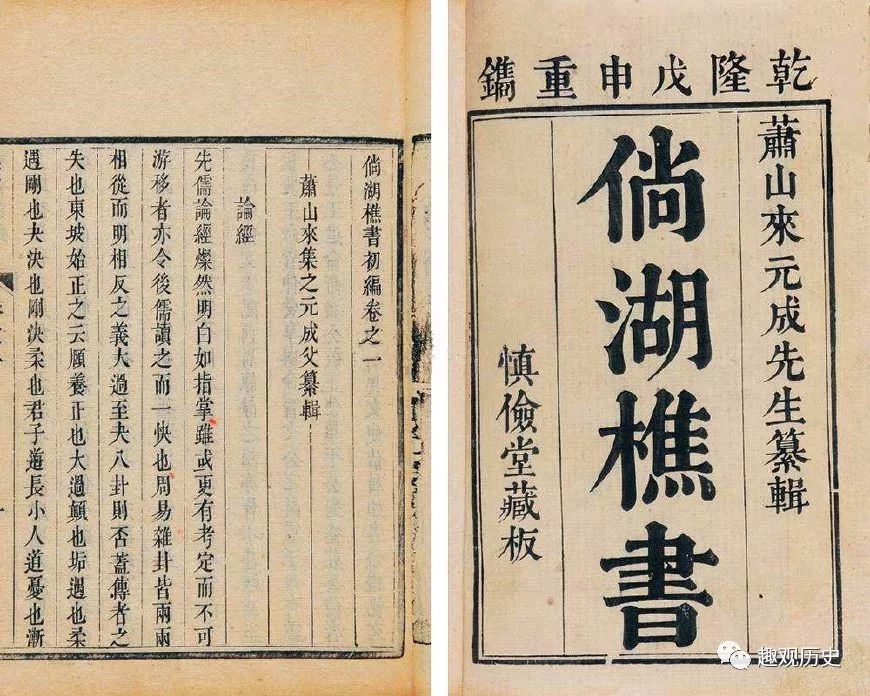 乾隆戊申重鐫
蕭山來元成先生纂輯
倘湖樵書
慎儉堂藏板
倘湖樵書初編卷之一
蕭山來集之元成父纂輯
論經
先儒論經燦然明白如指掌雖或更有考定而不可
游移者亦令後儒讀之而一快也周易雜卦皆兩兩
相從而明相反之義大過至夬八卦則否蓋傳者之
失也東坡始正之云頤養正也大過顛也垢遇也柔
遇剛也夬決也剛決柔也君子道長小人道憂也漸
趣观历史